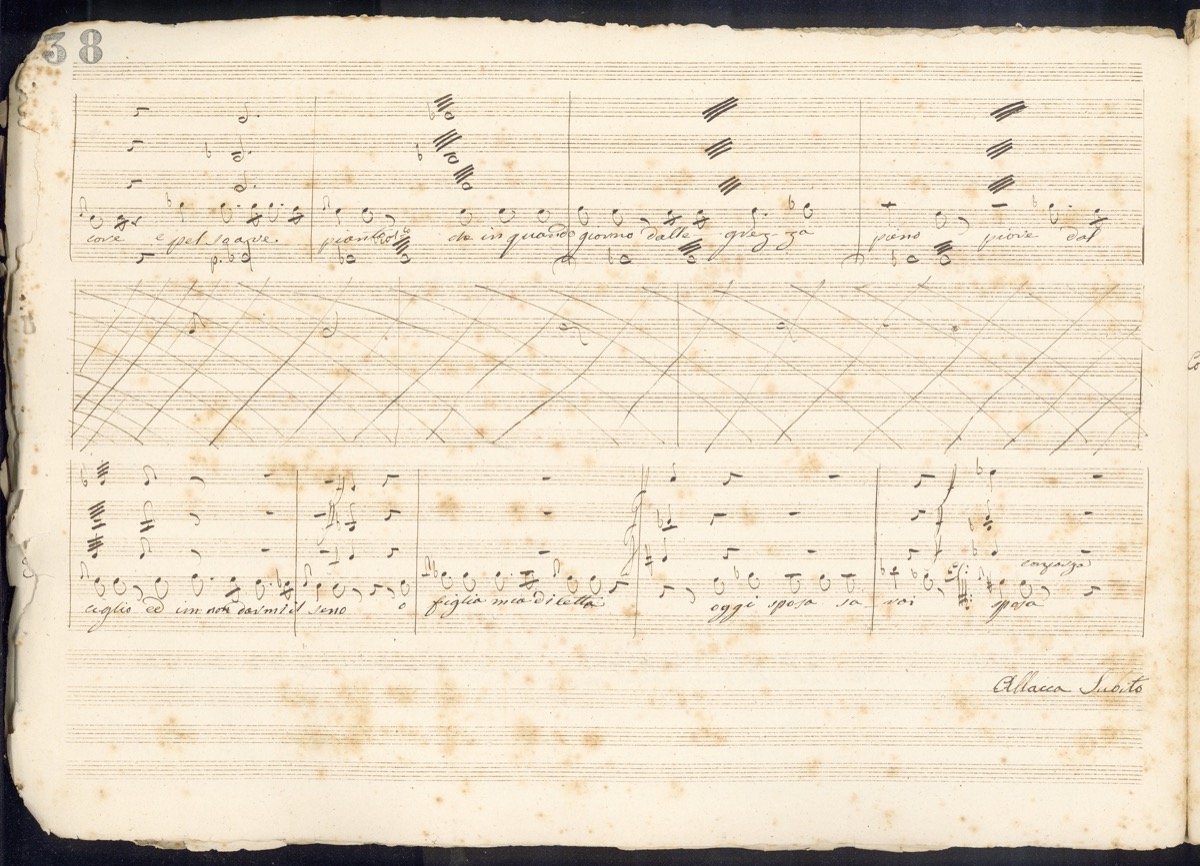 38
core e pel soave pianto che in quando giorno dalle grez-za pieno piove dal
con forza
ciglio ed im non darmi il seno o figlia mia diletta oggi sposa sa rai sposa
Attacca Subito